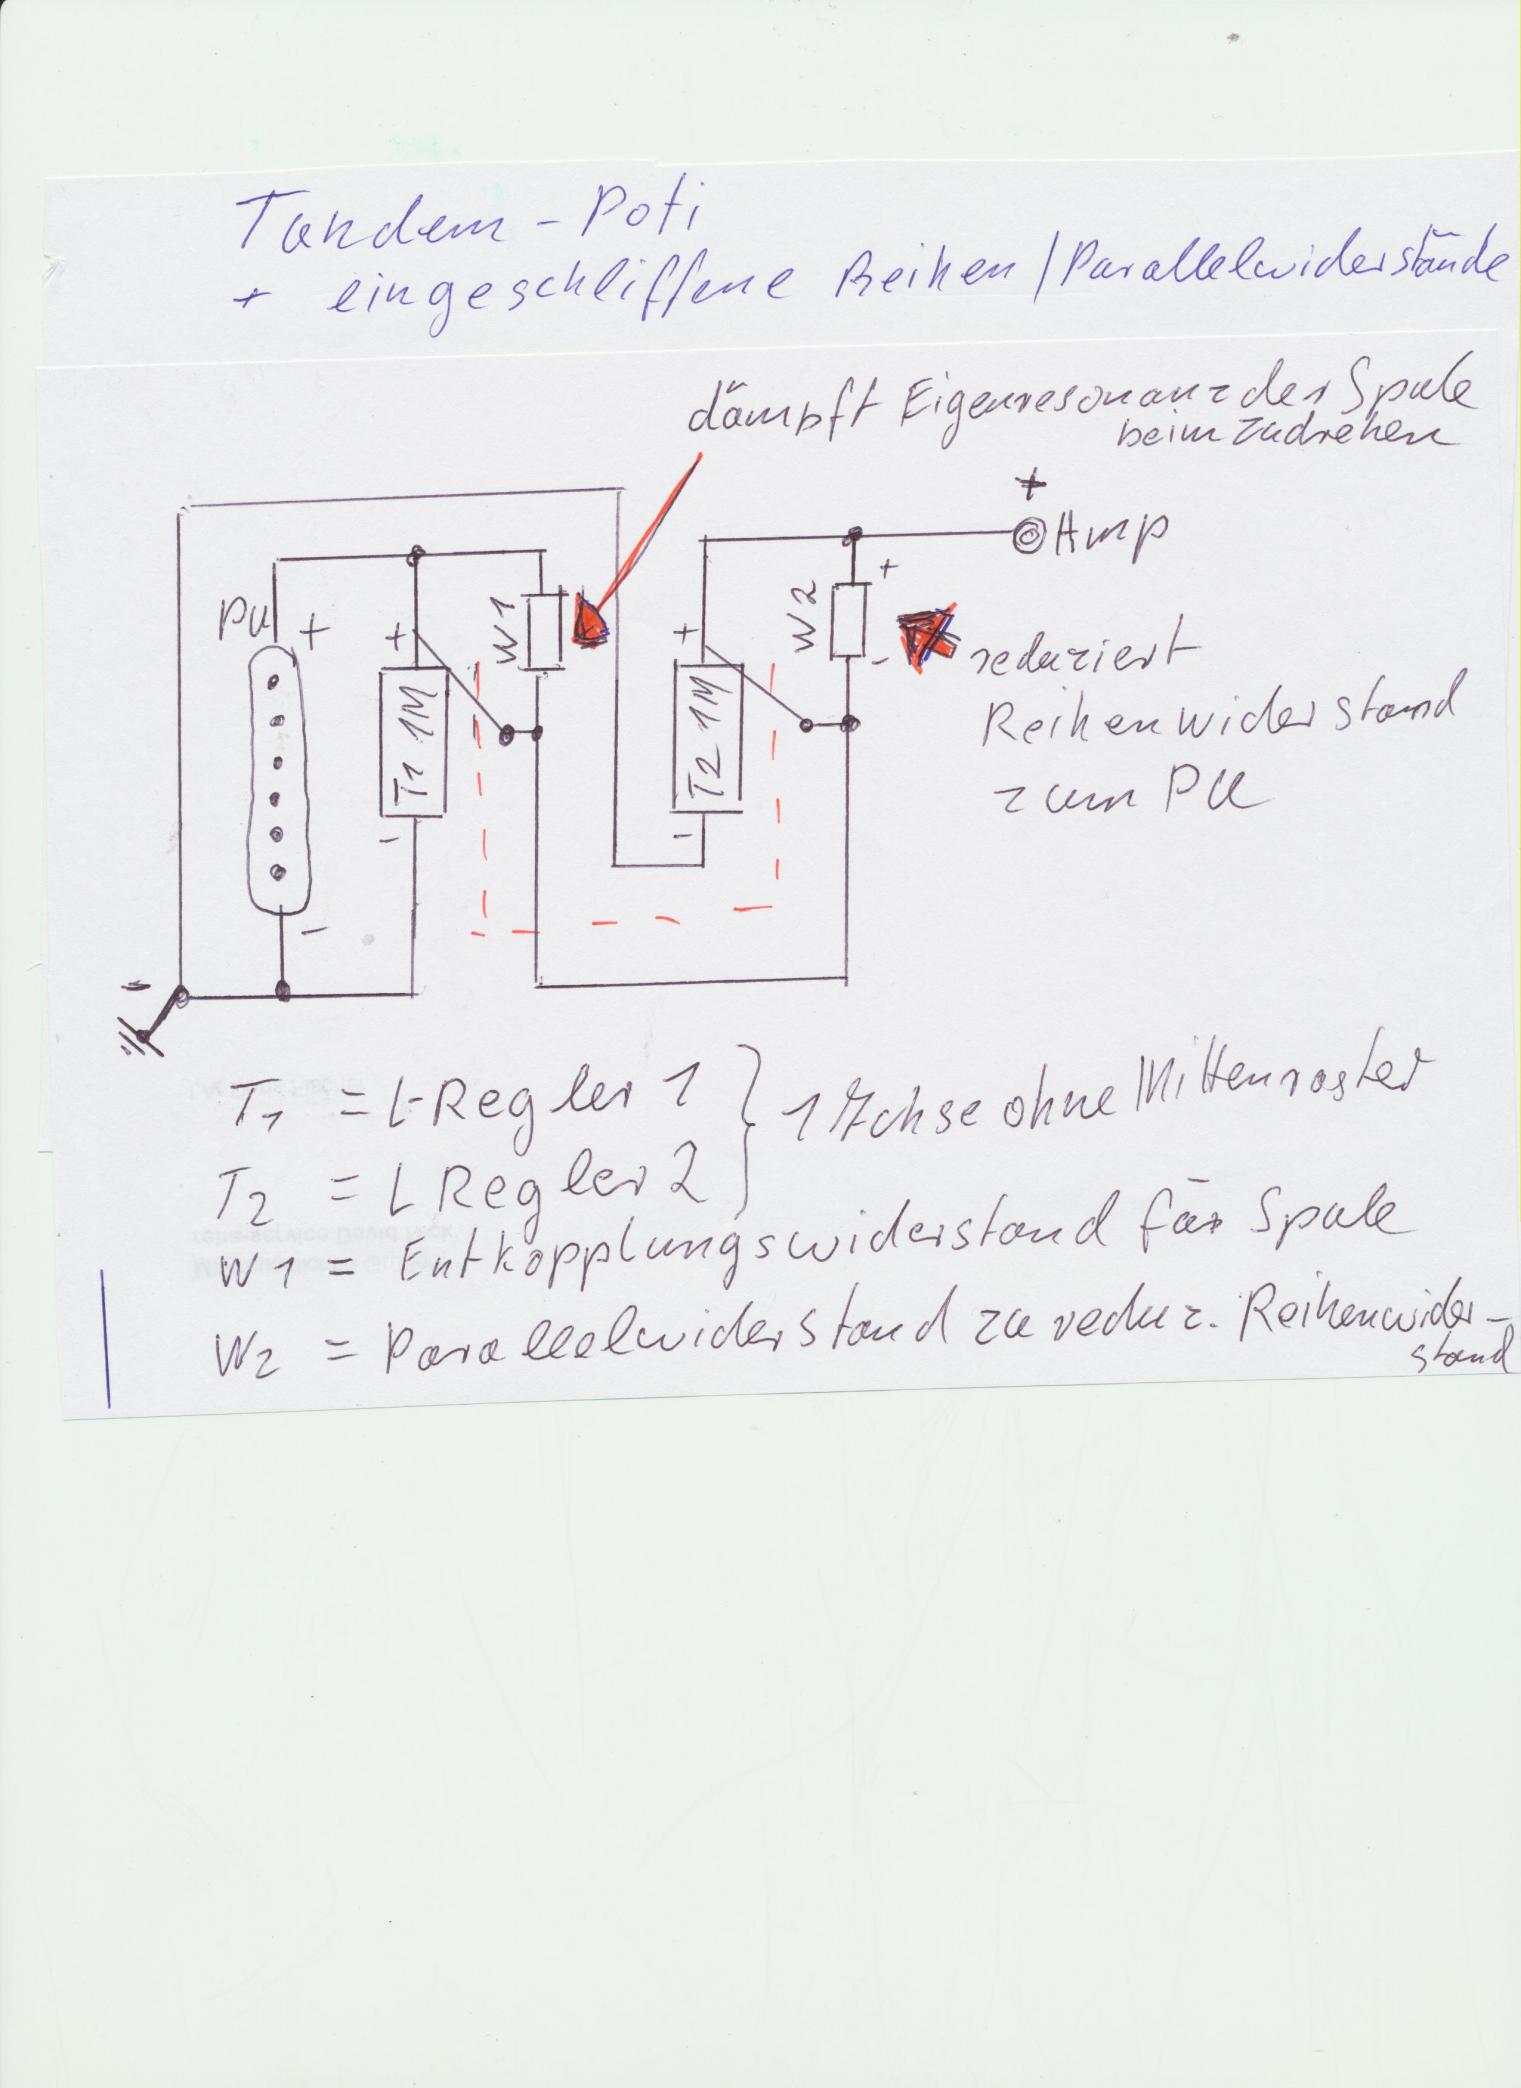 Tandem-Poti
+ eingeschliffene Reihen/Parallelwiderstände
dämpft Eigenresonanz der Spule
beim zudrehen
+
Amp
PU +
+
W1
+
W2
+
-
reduziert
Reihenwiderstand
zum PU
T1 1M
T2 1M
-
-
-
-
T1 = L-Regler 1 } 1 Achse ohne Mittenraster
T2 = L Regler 2
W1 = Entkopplungswiderstand für Spule
W2 = Parallelwiderstand zu reduz. Reihenwider-
stand